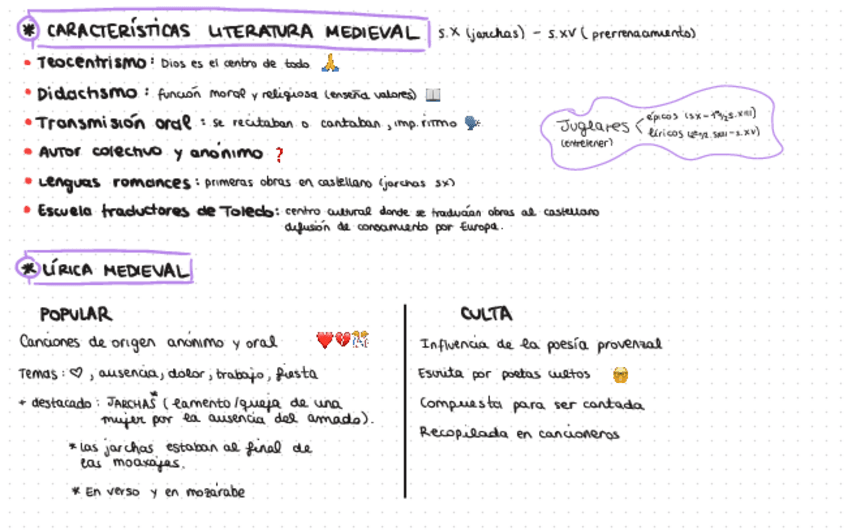 * CARACTERÍSTICAS LITERATURA MEDIEVAL s.X (jarchas) - s.XV (prerrenacimiento)
• Teocentrismo: Dios es el centro de todo 🙏
• Didactismo: función moral y religiosa (enseña valores) 📖
• Transmisión oral: se recitaban o cantaban, imp. ritmo 🗣️
Juglares (entretener)
épicos (sX - 1ª 1/2 s.XIII)
líricos (2ª 1/2 sXIII - s.XV)
• Autor colectivo y anónimo ❓
• Lenguas romances: primeras obras en castellano (jarchas sX)
• Escuela traductores de Toledo: centro cultural donde se traducían obras al castellano
difusión de conocimiento por Europa.
* LÍRICA MEDIEVAL
POPULAR
Canciones de origen anónimo y oral ❤️💔🎊
Temas: ♡, ausencia, dolor, trabajo, fiesta
+ destacado: JARCHAS* (lamento/queja de una
mujer por la ausencia del amado).
* Las jarchas estaban al final de
las moaxajas.
* En verso y en mozárabe
CULTA
Influencia de la poesía provenzal
Escrita por poetas cultos 🤓
Compuesta para ser cantada
Recopilada en cancioneros